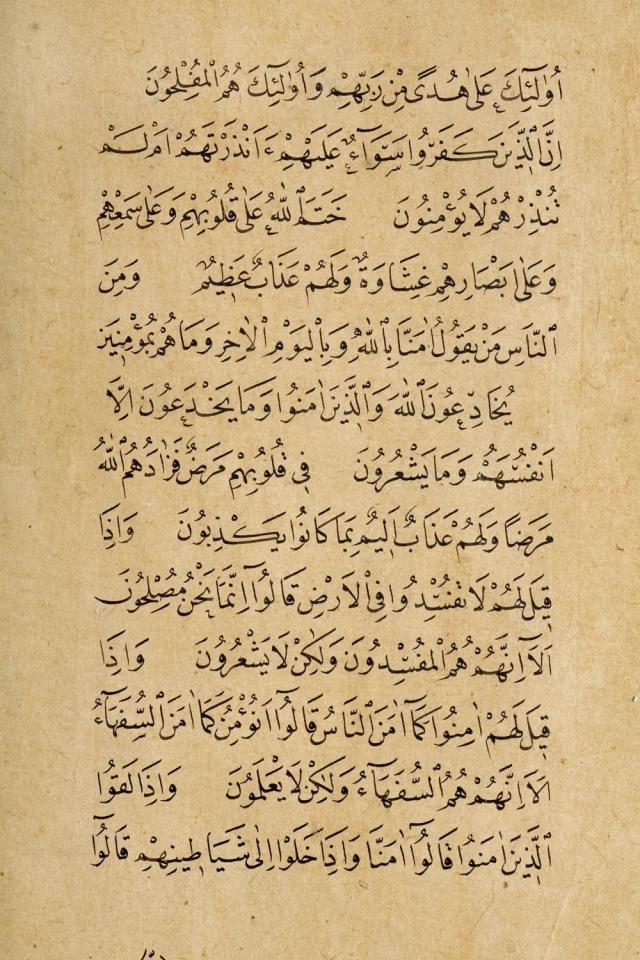 اُولٰٓئِكَ عَلٰى هُدًى مِنْ رَبِّهِمْ وَاُولٰٓئِكَ هُمُ الْمُفْلِحُونَ
اِنَّ الَّذِينَ كَفَرُوا سَوَٓاءٌ عَلَيْهِمْ ءَاَنْذَرْتَهُمْ اَمْ لَمْ
تُنْذِرْهُمْ لَا يُؤْمِنُونَ خَتَمَ اللّٰهُ عَلٰى قُلُوبِهِمْ وَعَلٰى سَمْعِهِمْ
وَعَلٰٓى اَبْصَارِهِمْ غِشَاوَةٌ وَلَهُمْ عَذَابٌ عَظِيمٌ وَمِنَ
النَّاسِ مَنْ يَقُولُ اٰمَنَّا بِاللّٰهِ وَبِالْيَوْمِ الْاٰخِرِ وَمَا هُمْ بِمُؤْمِنِينَ
يُخَادِعُونَ اللّٰهَ وَالَّذِينَ اٰمَنُوا وَمَا يَخْدَعُونَ اِلَّٓا
اَنْفُسَهُمْ وَمَا يَشْعُرُونَ فِي قُلُوبِهِمْ مَرَضٌ فَزَادَهُمُ اللّٰهُ
مَرَضًا وَلَهُمْ عَذَابٌ اَلِيمٌ بِمَا كَانُوا يَكْذِبُونَ وَاِذَا
قِيلَ لَهُمْ لَا تُفْسِدُوا فِي الْاَرْضِ قَالُٓوا اِنَّمَا نَحْنُ مُصْلِحُونَ
اَلَٓا اِنَّهُمْ هُمُ الْمُفْسِدُونَ وَلٰكِنْ لَا يَشْعُرُونَ وَاِذَا
قِيلَ لَهُمْ اٰمِنُوا كَمَٓا اٰمَنَ النَّاسُ قَالُٓوا اَنُؤْمِنُ كَمَٓا اٰمَنَ السُّفَهَٓاءُ
اَلَٓا اِنَّهُمْ هُمُ السُّفَهَٓاءُ وَلٰكِنْ لَا يَعْلَمُونَ وَاِذَا لَقُوا
الَّذِينَ اٰمَنُوا قَالُٓوا اٰمَنَّا وَاِذَا خَلَوْا اِلٰى شَيَاطِينِهِمْ قَالُٓوا